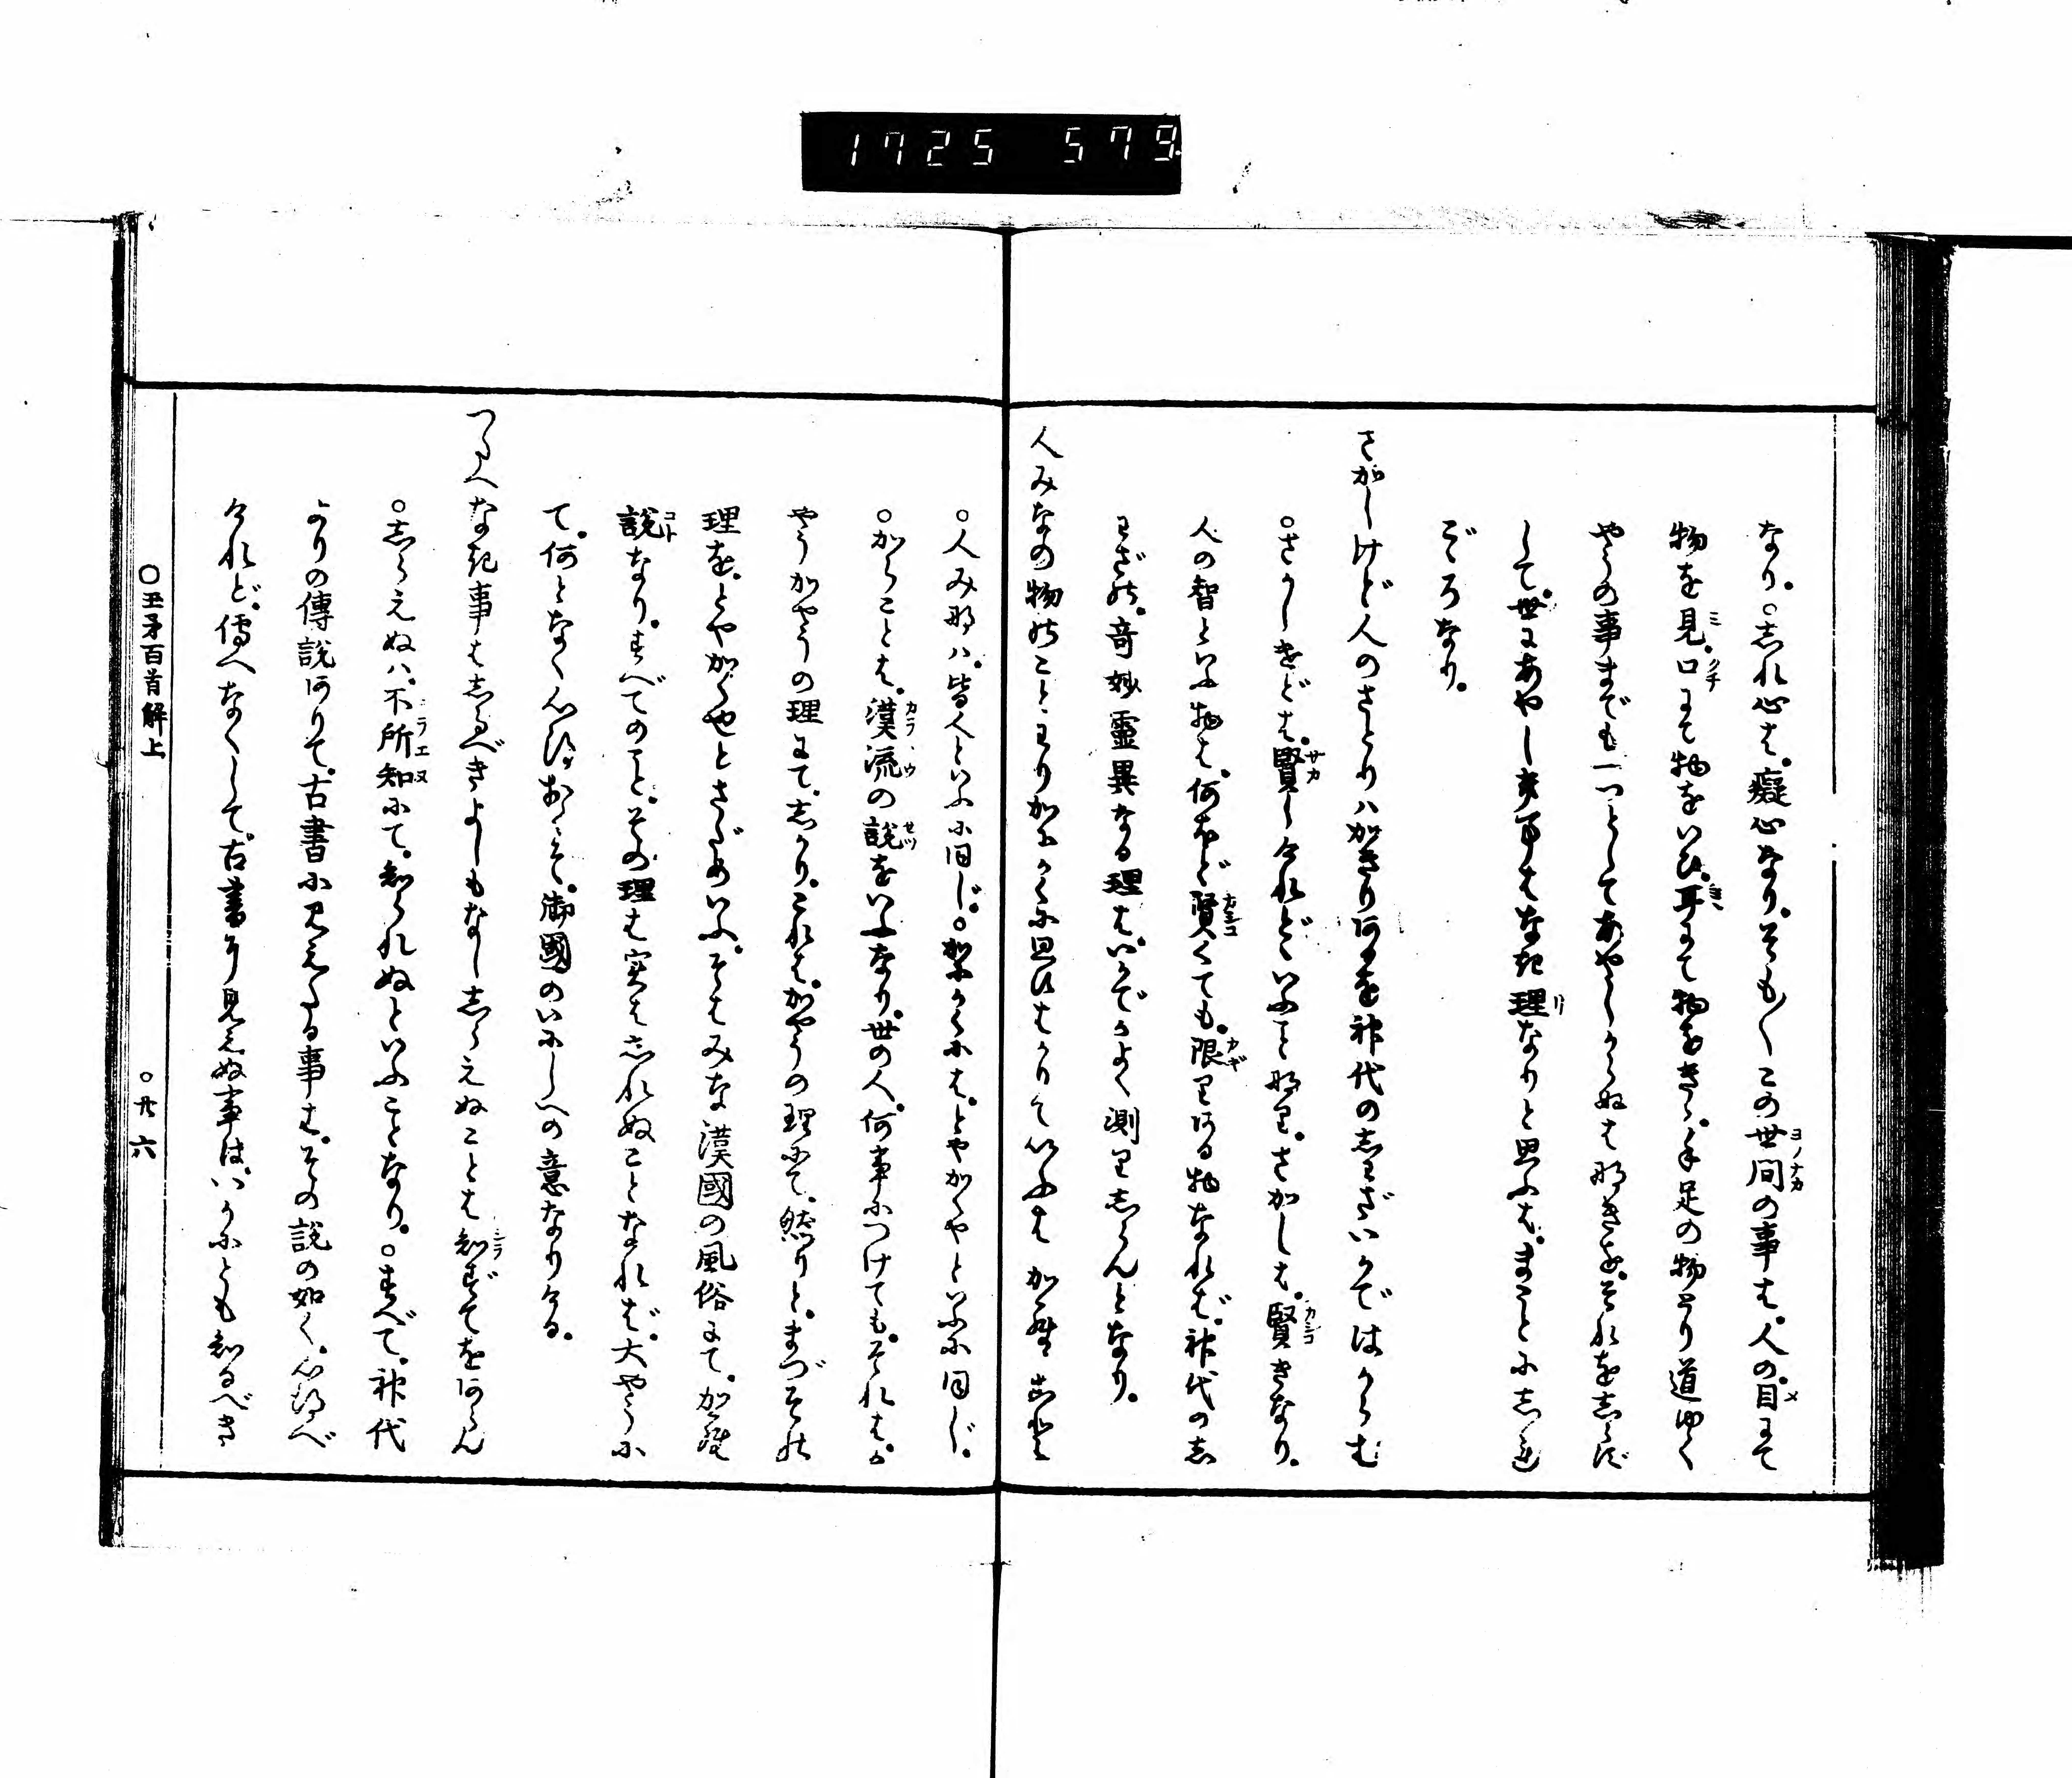 1725 579
なり。○志れ心は。癡心なり。そも〳〵この世間の事は。人の目にて
物を見。口にて物をいひ。耳にて物をきゝ。手足の物とり道ゆく
やうの事までも一つとしてあやしからぬは那きを。それを志らず
して。世にあやしき事はなき理なりと思ふは。まことに志れ
ごゝろなり。
さかしけど人のさとりハかきりあるを神代の志わざいかではからむ
○さかしけどは。賢しけれどゝいふこと那り。さかしは。賢きなり。
人の智といふ物は。何ほど賢くても。限りある物なれば。神代の志
わざの。奇妙靈異なる理は。いかでかよく測り志らんとなり。
人みなの物のことわりかにかくに思ひはかりていふはからこと
○人み那ハ。皆人といふに同じ。○かにかくには。とやかくやといふに同じ。
○からことは。漢流の説をいふなり。世の人。何事につけても。それはか
やうかやうの理にて。志かり。これは。かやうの理にて。然りと。まづその
理を。とやかくやとさだめいふ。そはみな漢國の風俗にて。から
説なり。すべてのこと。その理は実は志れぬことなれば。大やうに
て。何となく心得おくそ。御國のいにしへの意なりける。
つたへなき事は志るべきよしもなし志らえぬことは知ずてをあらん
○志らえぬハ。不所知にて。知られぬといふことなり。○すべて。神代
よりの傳説ありて。古書に見えたる事は。その説の如く。心得べ
けれど。傳へなくして。古書に見えぬ事は。いかにとも知るべき
○玉矛百首解上
○廿六